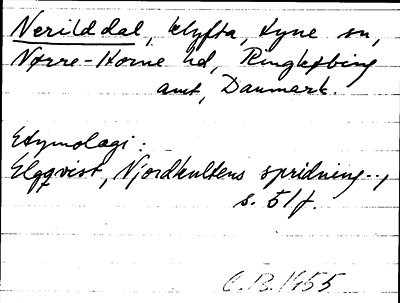 Nerilddal, klyfta, Hyne sn,
Nørre-Horne hd, Ringkøbing
amt, Danmark.
Etymologi:
Elgqvist, Njordkultens spridning..,
s. 51f.
C.B. 1955